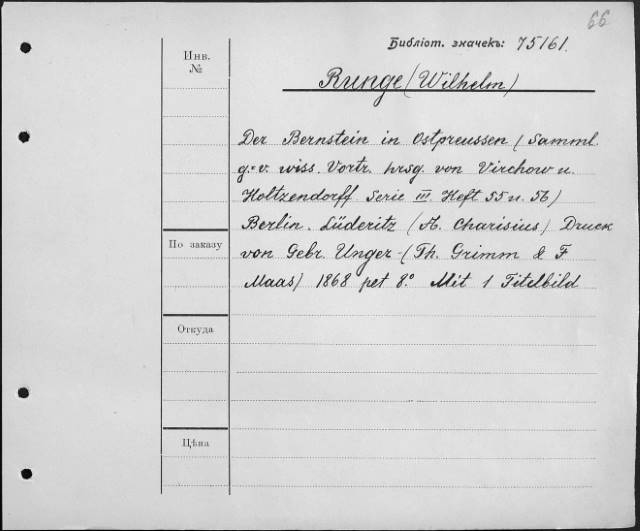 66
Библіот. значекъ: 75161.
Инв.
№
Runge (Wilhelm)
Der Bernstein in Ostpreussen (Samml.
g. v. wiss. Vortr. hrsg. von Virchow u.
Holtzendorff. Serie III. Heft 55 u. 56)
Berlin. Lüderitz (A. Charisius) Druck
По заказу
von Gebr. Unger (Th. Grimm & F
Maas) 1868 pet 8.° Mit 1 Titelbild
Откуда
Цѣна